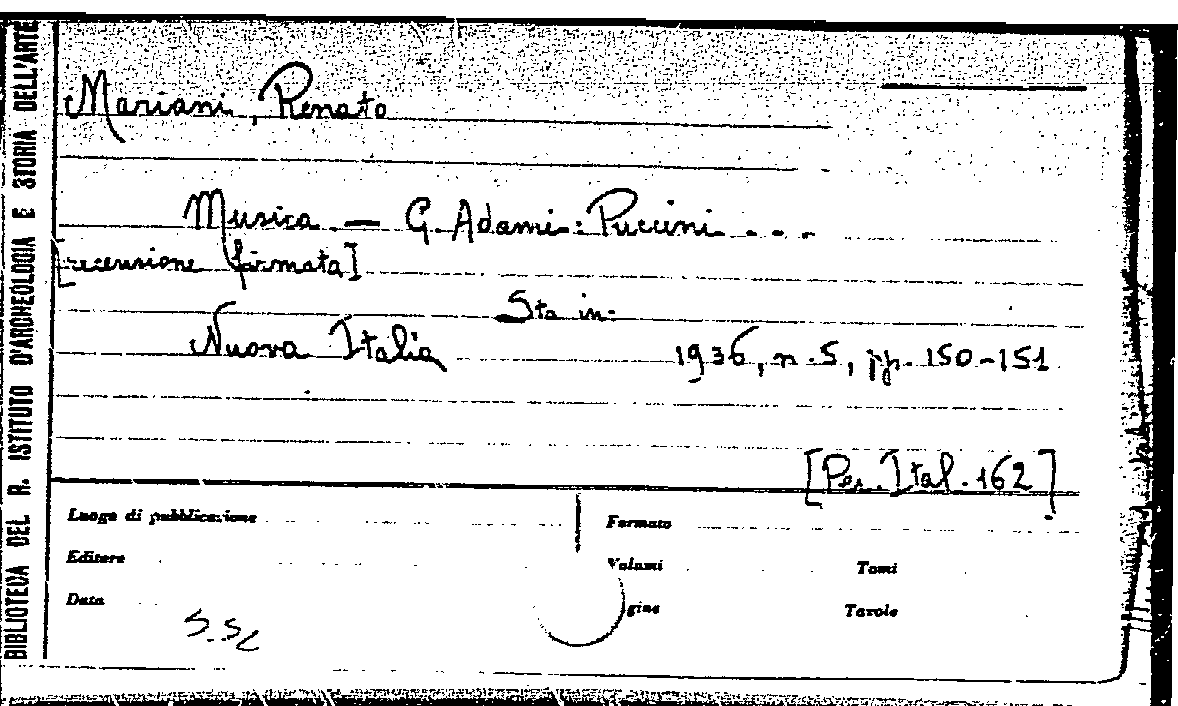 BIBLIOTECA DEL R. ISTITUTO D'ARCHEOLOGIA E STORIA DELL'ARTE
Mariani, Renato
Musica — G. Adami: Puccini . . .
[recensione firmata]
Sta in:
Nuova Italia 1936, n. 5, pp. 150-151
[Per. Ital. 162]
Luogo di pubblicazione Formato
Editore Volumi Tomi
Data gine Tavole